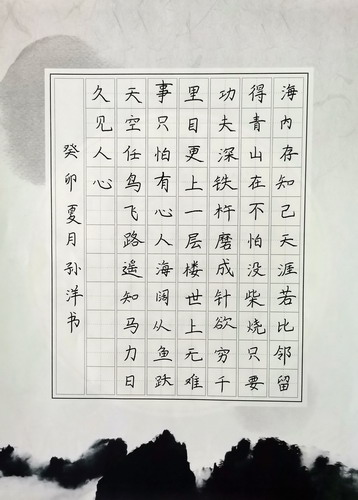 海内存知己天涯若比邻留
得青山在不怕没柴烧只要
功夫深铁杵磨成针欲穷千
里目更上一层楼世上无难
事只怕有心人海阔从鱼跃
天空任鸟飞路遥知马力日
久见人心
癸卯夏月孙洋书